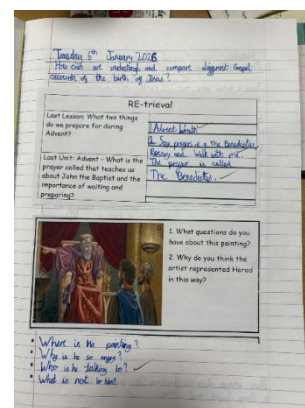 Tuesday 6th January 2026
How can we understand and compare different Gospel
accounts of the birth of Jesus?
RE-trieval
Last Lesson: What two things
do we prepare for during
Advent?
Advent
Say prayers e.g The Benedictus
Rosary and walk with me.
Last Unit: Advent - What is the
prayer called that teaches us
about John the Baptist and the
importance of waiting and
preparing?
The prayer is called
The Benedictus.
1. What questions do you
have about this painting?
2. Why do you think the
artist represented Herod
in this way?
• Where is he pointing?
• Why is he so angry?
• Who is he talking to?
• What is next to him?